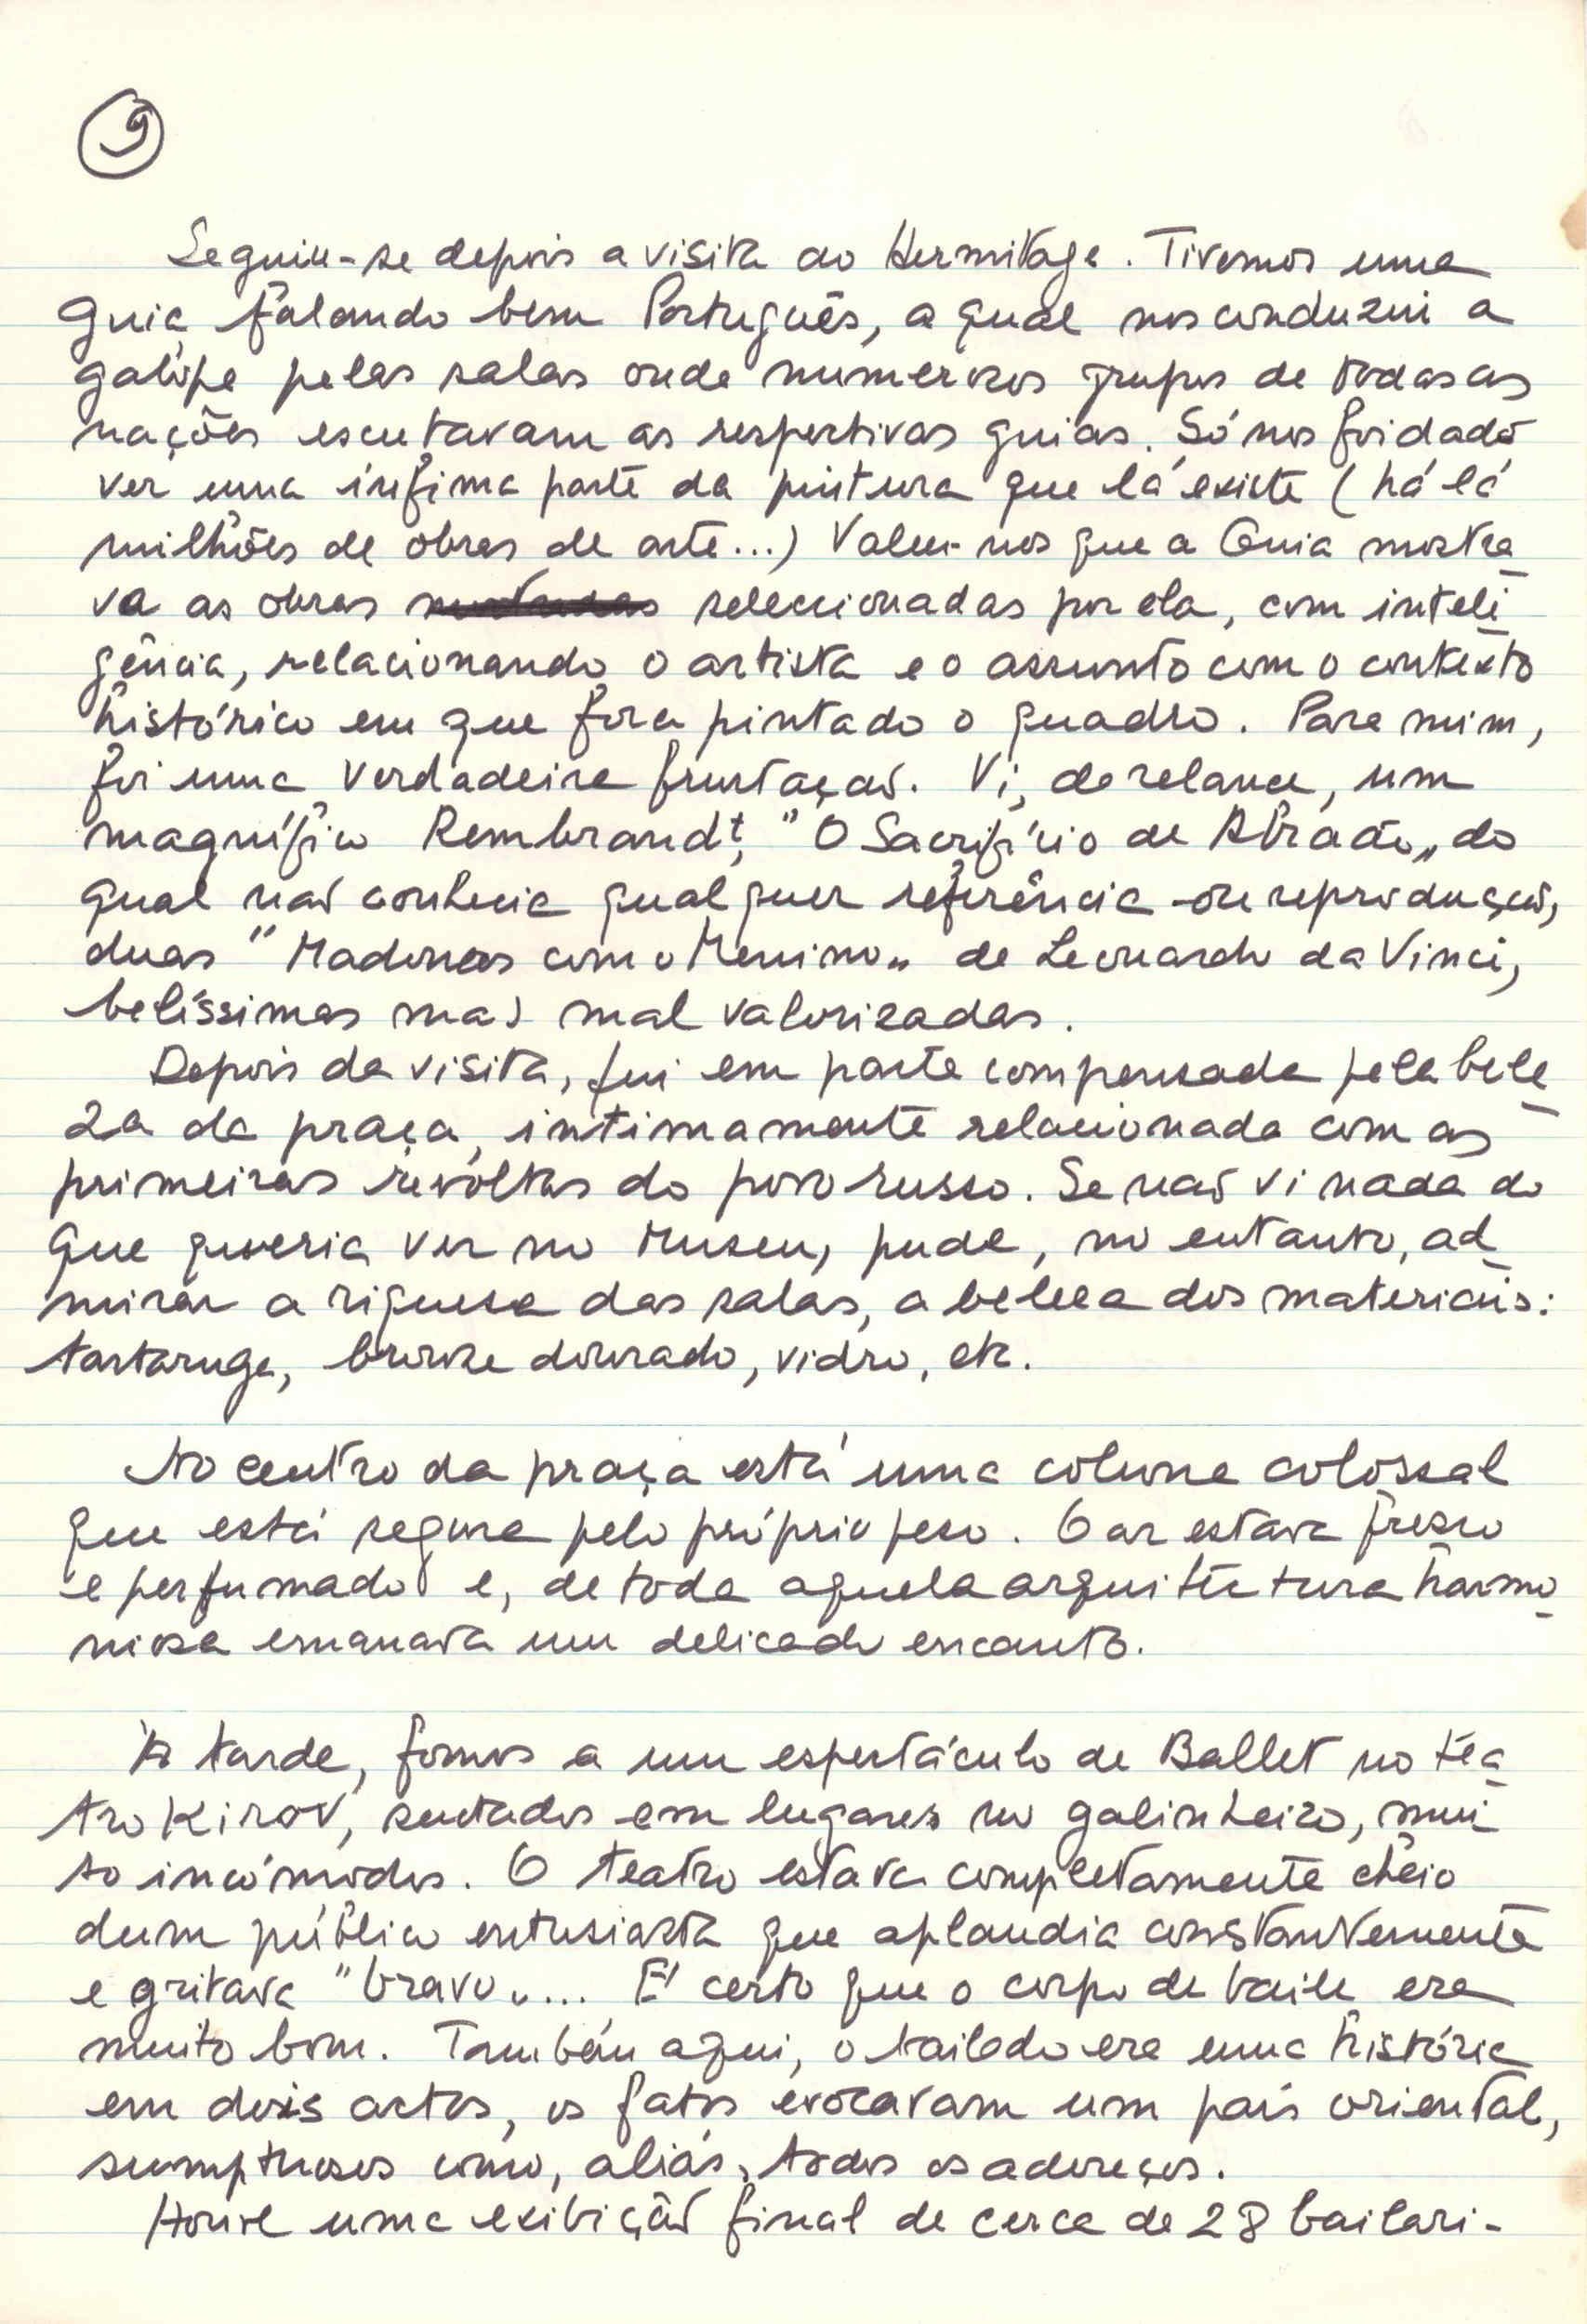 9
Seguiu-se depois a visita ao Hermitage. Tivemos uma
guia falando bem Português, a qual nos conduziu a
galope pelas salas onde numerosos grupos de todas as
nações escutavam as respectivas guias. Só nos foi dado
ver uma ínfima parte da pintura que lá existe (há lá
milhões de obras de arte...) Valeu-nos que a Guia mostra
va as obras seleccionadas por ela, com inteli
gência, relacionando o artista e o assunto com o contexto
histórico em que fora pintado o quadro. Para mim,
foi uma verdadeira frustação. Vi, de relance, um
magnífico Rembrandt, "O Sacrifício de Abraão„ do
qual não conhecia qualquer referência ou reprodução,
duas "Madonas com o Menino„ de Leonardo da Vinci,
belíssimas mas mal valorizadas.
Depois da visita, fui em parte compensada pela bele
za da praça, intimamente relacionada com as
primeiras revoltas do povo russo. Se não vi nada do
que queria ver no Museu, pude, no entanto, ad
mirar a riqueza das salas, a beleza dos materiais:
tartaruga, bronze dourado, vidro, etc.
No centro da praça está uma coluna colossal
que está segura pelo próprio peso. O ar estava fresco
e perfumado e, de toda aquela arquitectura harmo
niosa emanava um delicado encanto.
À tarde, fomos a um espectáculo de Ballet no tea
tro Kirov, sentados em lugares no galinheiro, mui
to incómodos. O teatro estava completamente cheio
dum público entusiasta que aplaudia constantemente
e gritava "bravo„... É certo que o corpo de baile era
muito bom. Também aqui, o bailado era uma história
em dois actos, os fatos evocavam um país oriental,
sumptuosos como, aliás, todos os adereços.
Houve uma exibição final de cerca de 28 bailari-